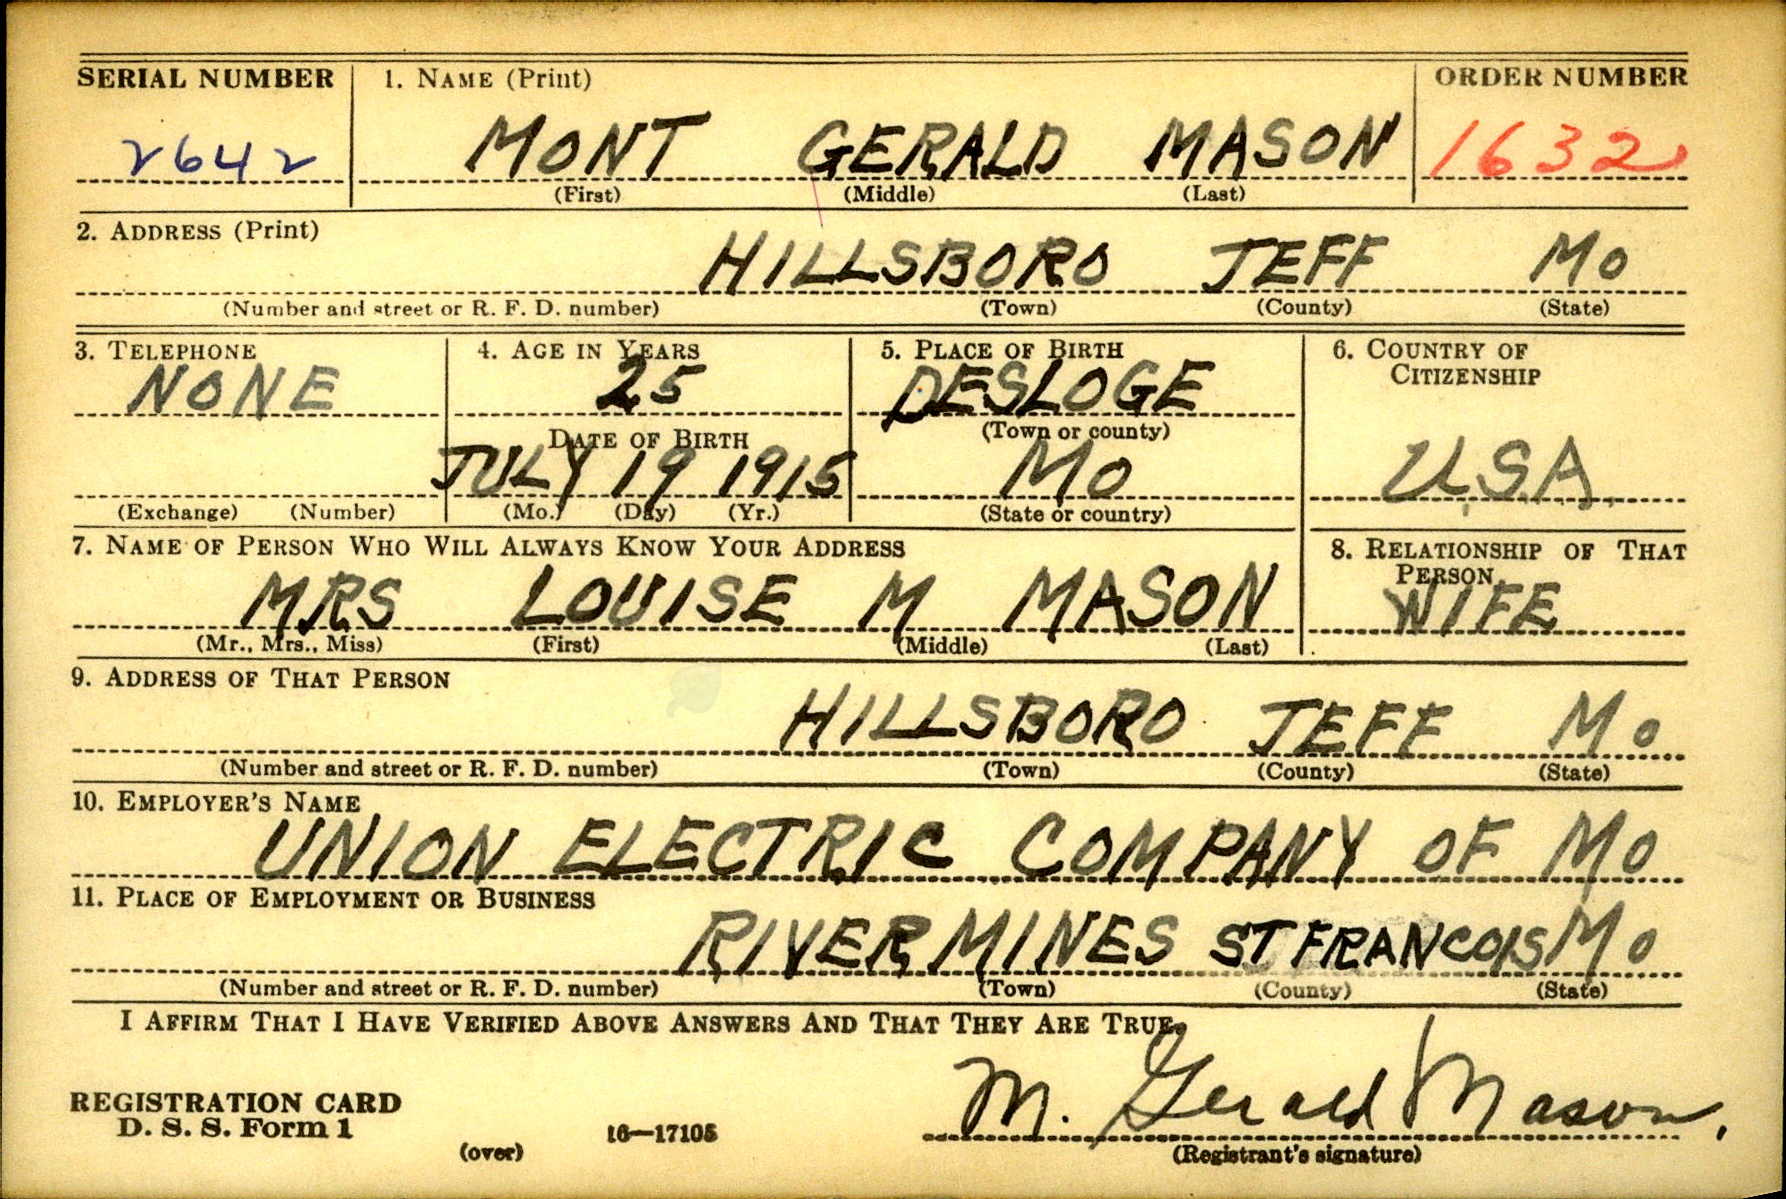 SERIAL NUMBER 1. NAME (Print) ORDER NUMBER
2642 MONT GERALD MASON 1632
(First) (Middle) (Last)
2. ADDRESS (Print)
HILLSBORO JEFF MO
(Number and street or R. F. D. number) (Town) (County) (State)
3. TELEPHONE 4. AGE IN YEARS 5. PLACE OF BIRTH 6. COUNTRY OF
CITIZENSHIP
NONE 25 DESLOGE
DATE OF BIRTH (Town or county)
JULY 19 1915 MO U.S.A.
(Exchange) (Number) (Mo.) (Day) (Yr.) (State or country)
7. NAME OF PERSON WHO WILL ALWAYS KNOW YOUR ADDRESS 8. RELATIONSHIP OF THAT
PERSON
MRS LOUISE M MASON WIFE
(Mr., Mrs., Miss) (First) (Middle) (Last)
9. ADDRESS OF THAT PERSON
HILLSBORO JEFF Mo
(Number and street or R. F. D. number) (Town) (County) (State)
10. EMPLOYER'S NAME
UNION ELECTRIC COMPANY OF MO
11. PLACE OF EMPLOYMENT OR BUSINESS
RIVERMINES ST FRANCOIS Mo
(Number and street or R. F. D. number) (Town) (County) (State)
I AFFIRM THAT I HAVE VERIFIED ABOVE ANSWERS AND THAT THEY ARE TRUE.
M. Gerald Mason.
REGISTRATION CARD
D. S. S. Form 1 (over) 16—17105 (Registrant's signature)